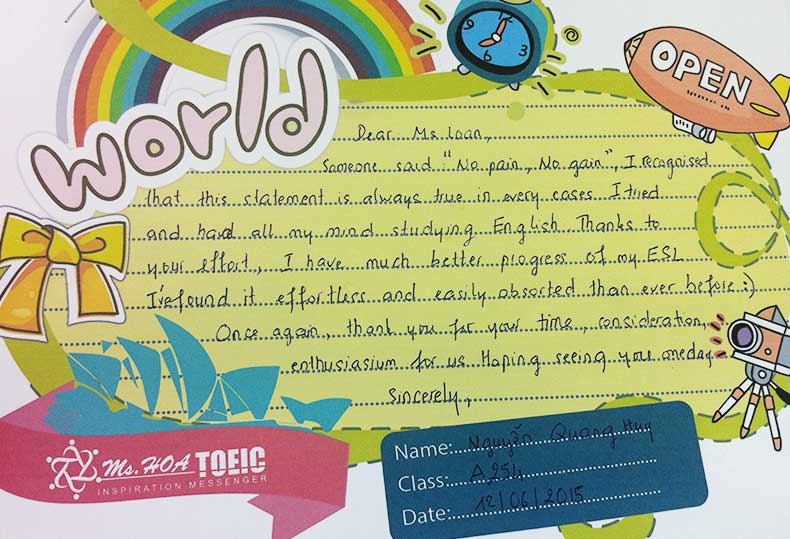 world
9
6
3
OPEN
Dear Ms loan,
Someone said "No pain, No gain", I recognised
that this statement is always true in every cases I tried
and hard all my mind studying English Thanks to
your effort, I have much better progress of my ESL
I've found it effortless and easily absorted than ever before :)
Once again, thank you for your time, consideration,
enthusiasium for us Hoping seeing you oneday
Sincerely,
Ms. HOA TOEIC
INSPIRATION MESSENGER
Name: Nguyễn Quang Huy
Class: A254
Date: 12/06/2015